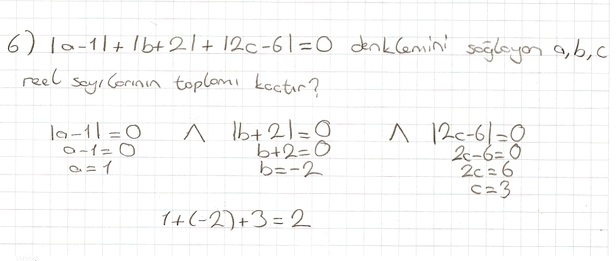 6) |a-1|+|b+2|+|2c-6|=0 denklemini sağlayan a,b,c
reel sayılarının toplamı kaçtır?
|a-1|=0 ∧ |b+2|=0 ∧ |2c-6|=0
a-1=0 b+2=0 2c-6=0
a=1 b=-2 2c=6
c=3
1+(-2)+3=2